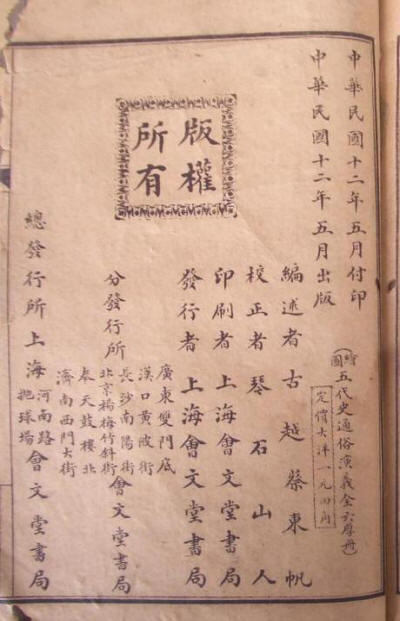 中華民國十二年五月付印
中華民國十二年五月出版
版權
所有
(繪圖五代史通俗演義全六厚册)
定價大洋一元四角
編述者古越蔡東帆
校正者琴石山人
印刷者上海會文堂書局
發行者上海會文堂書局
分發行所
廣東雙門底
漢口黃陂街
長沙南陽街
北京楊梅竹斜街
奉天鼓樓北
濟南西門大街
會文堂書局
總發行所上海
河南路
拋球場
會文堂書局